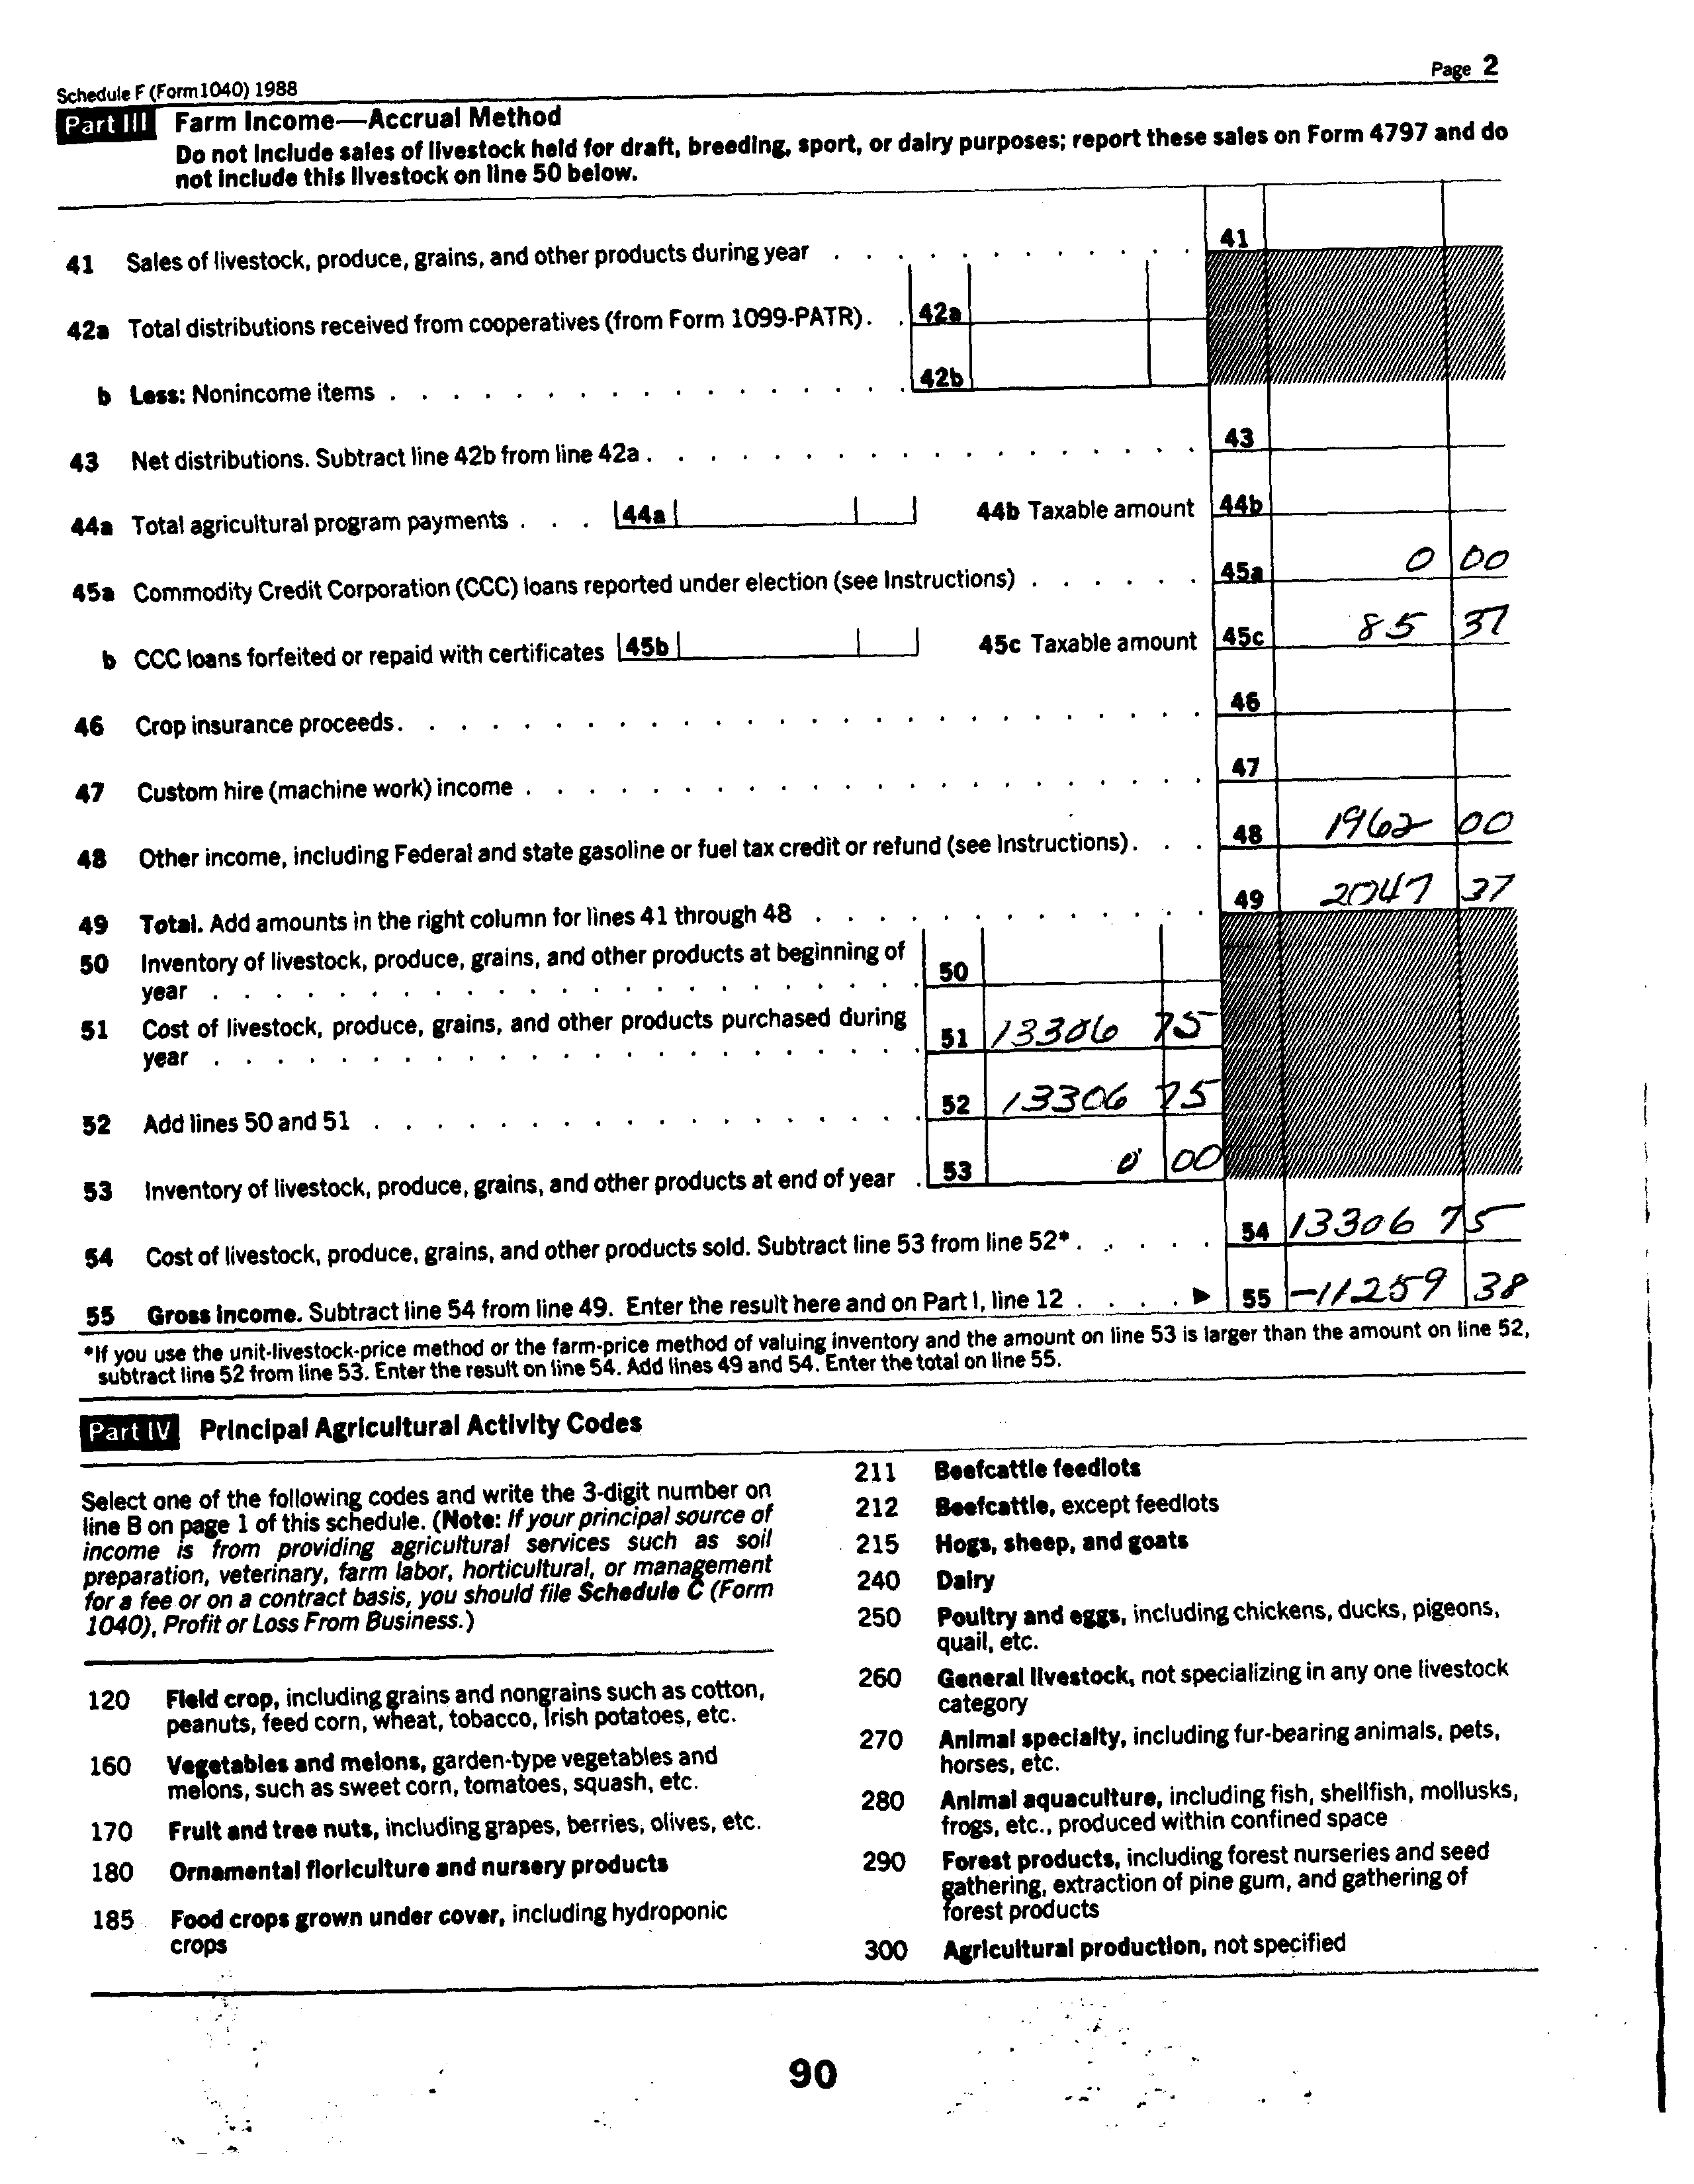 Schedule F (Form 1040) 1988
Page 2
Part III Farm Income—Accrual Method
Do not include sales of livestock held for draft, breeding, sport, or dairy purposes; report these sales on Form 4797 and do
not include this livestock on line 50 below.
41 Sales of livestock, produce, grains, and other products during year . . . . . . . . . . . . 41
42a Total distributions received from cooperatives (from Form 1099-PATR) . . 42a
b Less: Nonincome items . . . . . . . . . . . . . . . . . 42b
43 Net distributions. Subtract line 42b from line 42a . . . . . . . . . . . . . . . . . . 43
44a Total agricultural program payments . . . 44a 44b Taxable amount 44b
45a Commodity Credit Corporation (CCC) loans reported under election (see Instructions) . . . . . . 45a 0 00
b CCC loans forfeited or repaid with certificates 45b 45c Taxable amount 45c 85 37
46 Crop insurance proceeds . . . . . . . . . . . . . . . . . . . . . . . . . . 46
47 Custom hire (machine work) income . . . . . . . . . . . . . . . . . . . . . . 47
48 Other income, including Federal and state gasoline or fuel tax credit or refund (see Instructions) . . . 48 1962 00
49 Total. Add amounts in the right column for lines 41 through 48 . . . . . . . . . . . . . 49 2047 37
50 Inventory of livestock, produce, grains, and other products at beginning of
year . . . . . . . . . . . . . . . . . . . . . . . 50
51 Cost of livestock, produce, grains, and other products purchased during
year . . . . . . . . . . . . . . . . . . . . . . . 51 13306 75
52 Add lines 50 and 51 . . . . . . . . . . . . . . . . . . 52 13306 75
53 Inventory of livestock, produce, grains, and other products at end of year . 53 0 00
54 Cost of livestock, produce, grains, and other products sold. Subtract line 53 from line 52* . . . . . 54 13306 75
55 Gross income. Subtract line 54 from line 49. Enter the result here and on Part I, line 12 . . . . ▶ 55 -11259 38
*If you use the unit-livestock-price method or the farm-price method of valuing inventory and the amount on line 53 is larger than the amount on line 52,
subtract line 52 from line 53. Enter the result on line 54. Add lines 49 and 54. Enter the total on line 55.
Part IV Principal Agricultural Activity Codes
Select one of the following codes and write the 3-digit number on
line B on page 1 of this schedule. (Note: If your principal source of
income is from providing agricultural services such as soil
preparation, veterinary, farm labor, horticultural, or management
for a fee or on a contract basis, you should file Schedule C (Form
1040), Profit or Loss From Business.)
120 Field crop, including grains and nongrains such as cotton,
peanuts, feed corn, wheat, tobacco, Irish potatoes, etc.
160 Vegetables and melons, garden-type vegetables and
melons, such as sweet corn, tomatoes, squash, etc.
170 Fruit and tree nuts, including grapes, berries, olives, etc.
180 Ornamental floriculture and nursery products
185 Food crops grown under cover, including hydroponic
crops
211 Beefcattle feedlots
212 Beefcattle, except feedlots
215 Hogs, sheep, and goats
240 Dairy
250 Poultry and eggs, including chickens, ducks, pigeons,
quail, etc.
260 General livestock, not specializing in any one livestock
category
270 Animal specialty, including fur-bearing animals, pets,
horses, etc.
280 Animal aquaculture, including fish, shellfish, mollusks,
frogs, etc., produced within confined space
290 Forest products, including forest nurseries and seed
gathering, extraction of pine gum, and gathering of
forest products
300 Agricultural production, not specified
90